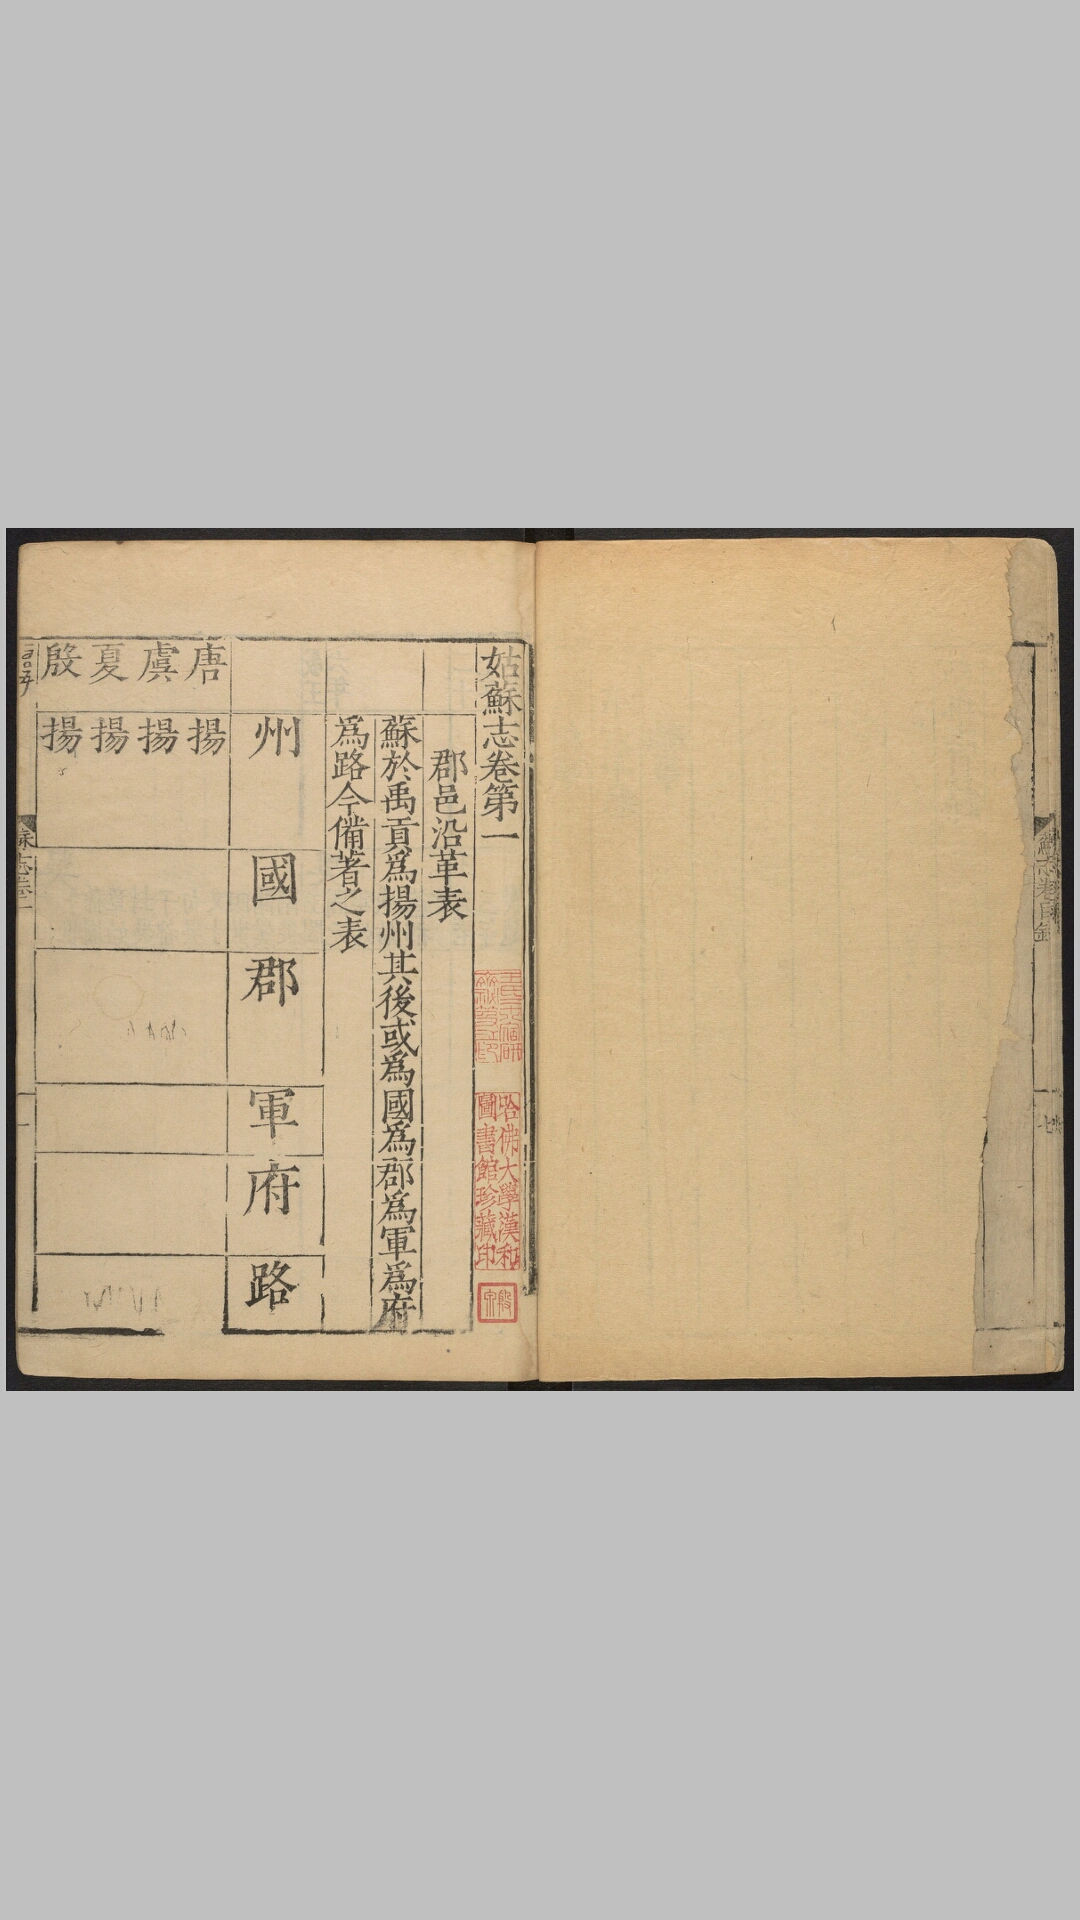 姑蘇志卷第一
郡邑沿革表
蘇於禹貢爲揚州其後或爲國爲郡爲軍爲府
爲路今備著之表
州 國 郡 軍 府 路
唐 揚
虞 揚
夏 揚
殷 揚
哈佛大學漢和
圖書館珍藏印
蘇志卷目錄